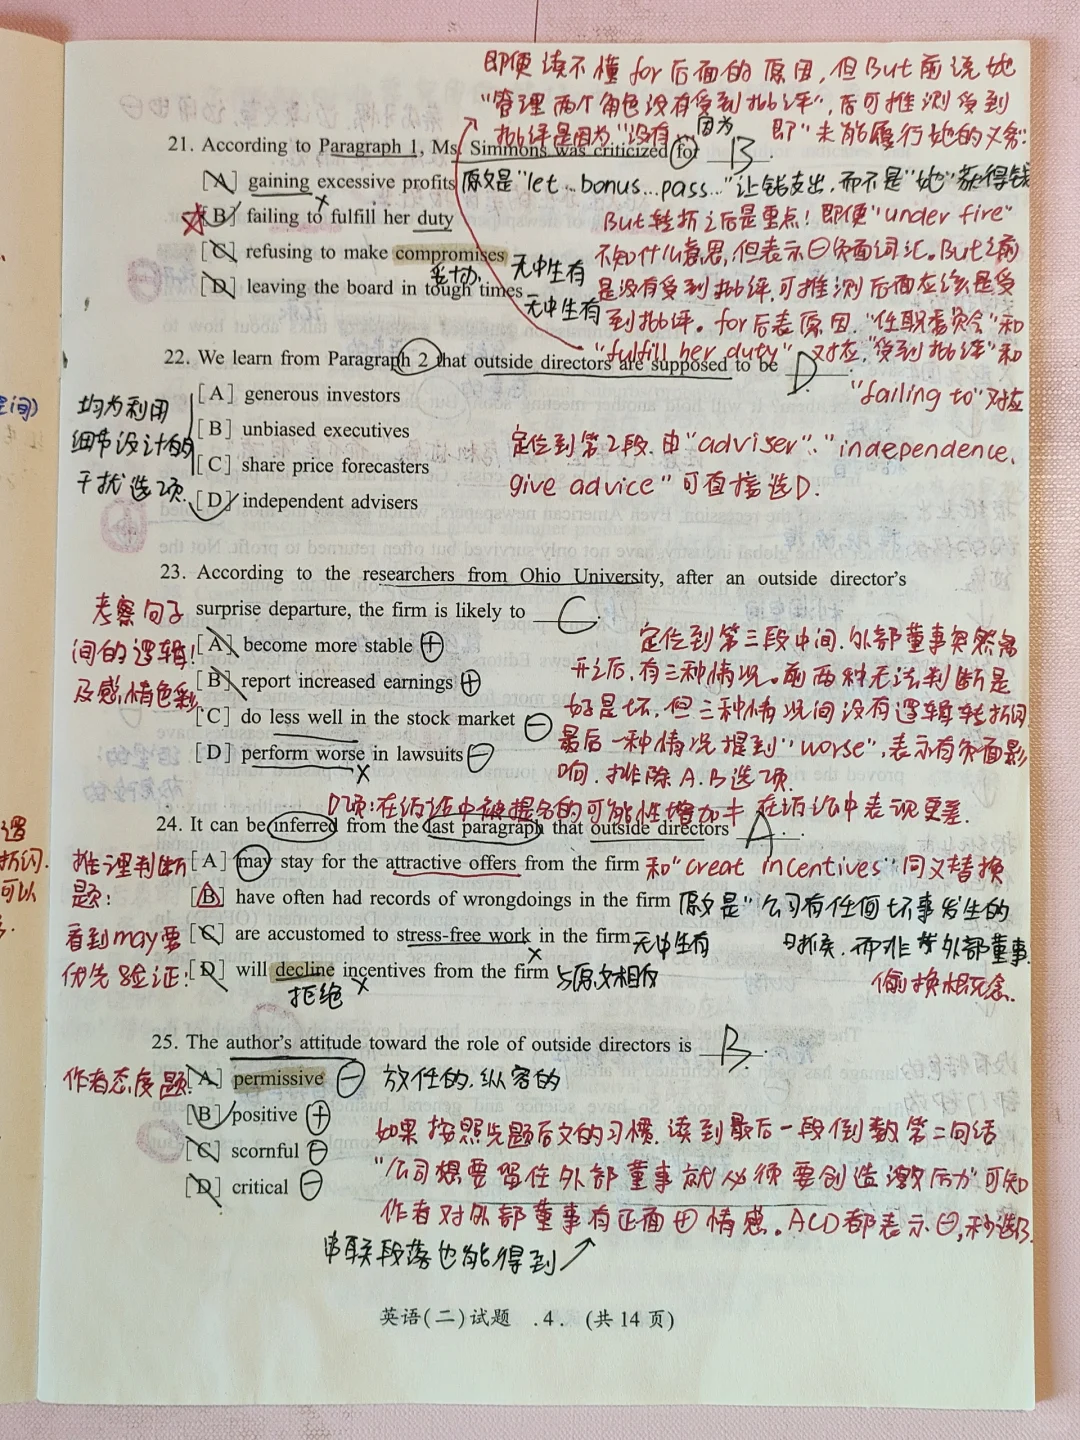 即便读不懂for后面的原因,但But前说她
"管理两个角色没有受到批评",后可推测受到
批评是因为"没有" 因为 即"未能履行她的义务".
21. According to Paragraph 1, Ms. Simmons was criticized for B.
[A] gaining excessive profits 原文是"let...bonus...pass..."让钱支出,而不是"她"获得钱
[B] failing to fulfill her duty
But转折之后是重点!即便"under fire"
[C] refusing to make compromises
妥协 无中生有
不知什么意思,但表示⊖负面词汇。But之前
[D] leaving the board in tough times
无中生有
是没有受到批评,可推测后面应该是受
到批评。for后表原因."任职委员会"和
"fulfill her duty"对应,"受到批评"和
"failing to"对应
22. We learn from Paragraph 2 that outside directors are supposed to be D.
[A] generous investors
[B] unbiased executives
[C] share price forecasters
[D] independent advisers
均为利用
细节设计的
干扰选项.
定位到第2段.由"adviser"."independence.
give advice"可直接选D.
23. According to the researchers from Ohio University, after an outside director's
surprise departure, the firm is likely to C.
考察句子
间的逻辑!
及感情色彩
[A] become more stable ⊕
[B] report increased earnings ⊕
[C] do less well in the stock market ⊖
[D] perform worse in lawsuits ⊖
x
定位到第三段中间.外部董事突然离
开之后,有三种情况。前两种无法判断是
好是坏.但三种情况间没有逻辑转折词
最后一种情况提到"worse",表示有负面影
响.排除A.B选项.
D项:在诉讼中被提名的可能性增加≠在诉讼中表现更差.
24. It can be inferred from the last paragraph that outside directors A.
[A] may stay for the attractive offers from the firm 和"creat incentives"同义替换
[B] have often had records of wrongdoings in the firm 原文是"公司有任何坏事发生的
[C] are accustomed to stress-free work in the firm 无中生有 时候.而非外部董事.
[D] will decline incentives from the firm 与原文相反 偷换概念.
拒绝 x
推理判断
题:
看到may要
优先验证!
25. The author's attitude toward the role of outside directors is B.
作者态度题
[A] permissive ⊖ 放任的.纵容的
[B] positive ⊕
[C] scornful ⊖
[D] critical ⊖
如果按照先题后文的习惯.读到最后一段倒数第二句话
"公司想要留住外部董事就必须要创造激励"可知
作者对外部董事有正面⊕情感。ACD都表示⊖,秒选B.
串联段落也能得到↗
英语(二)试题 .4. (共14页)